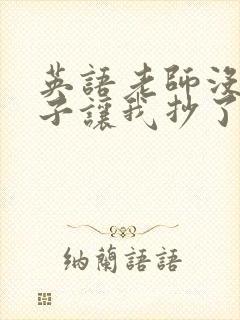 英語老師沒
子讓我抄了
納蘭語語